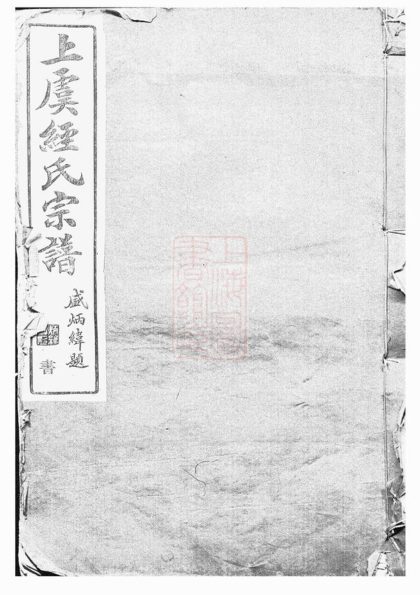 上虞經氏宗譜
盛炳緯題
書
上海圖書館藏